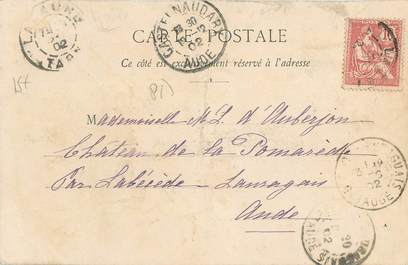 CARTE POSTALE
Ce côté est exclusivement réservé à l'adresse
CASTELNAUDARY
30
02
AUDE
Mademoiselle M. L. d'Auberjon
Château de la Pomarède
Par Labécède-Lauragais
Aude
AUDE
30
02